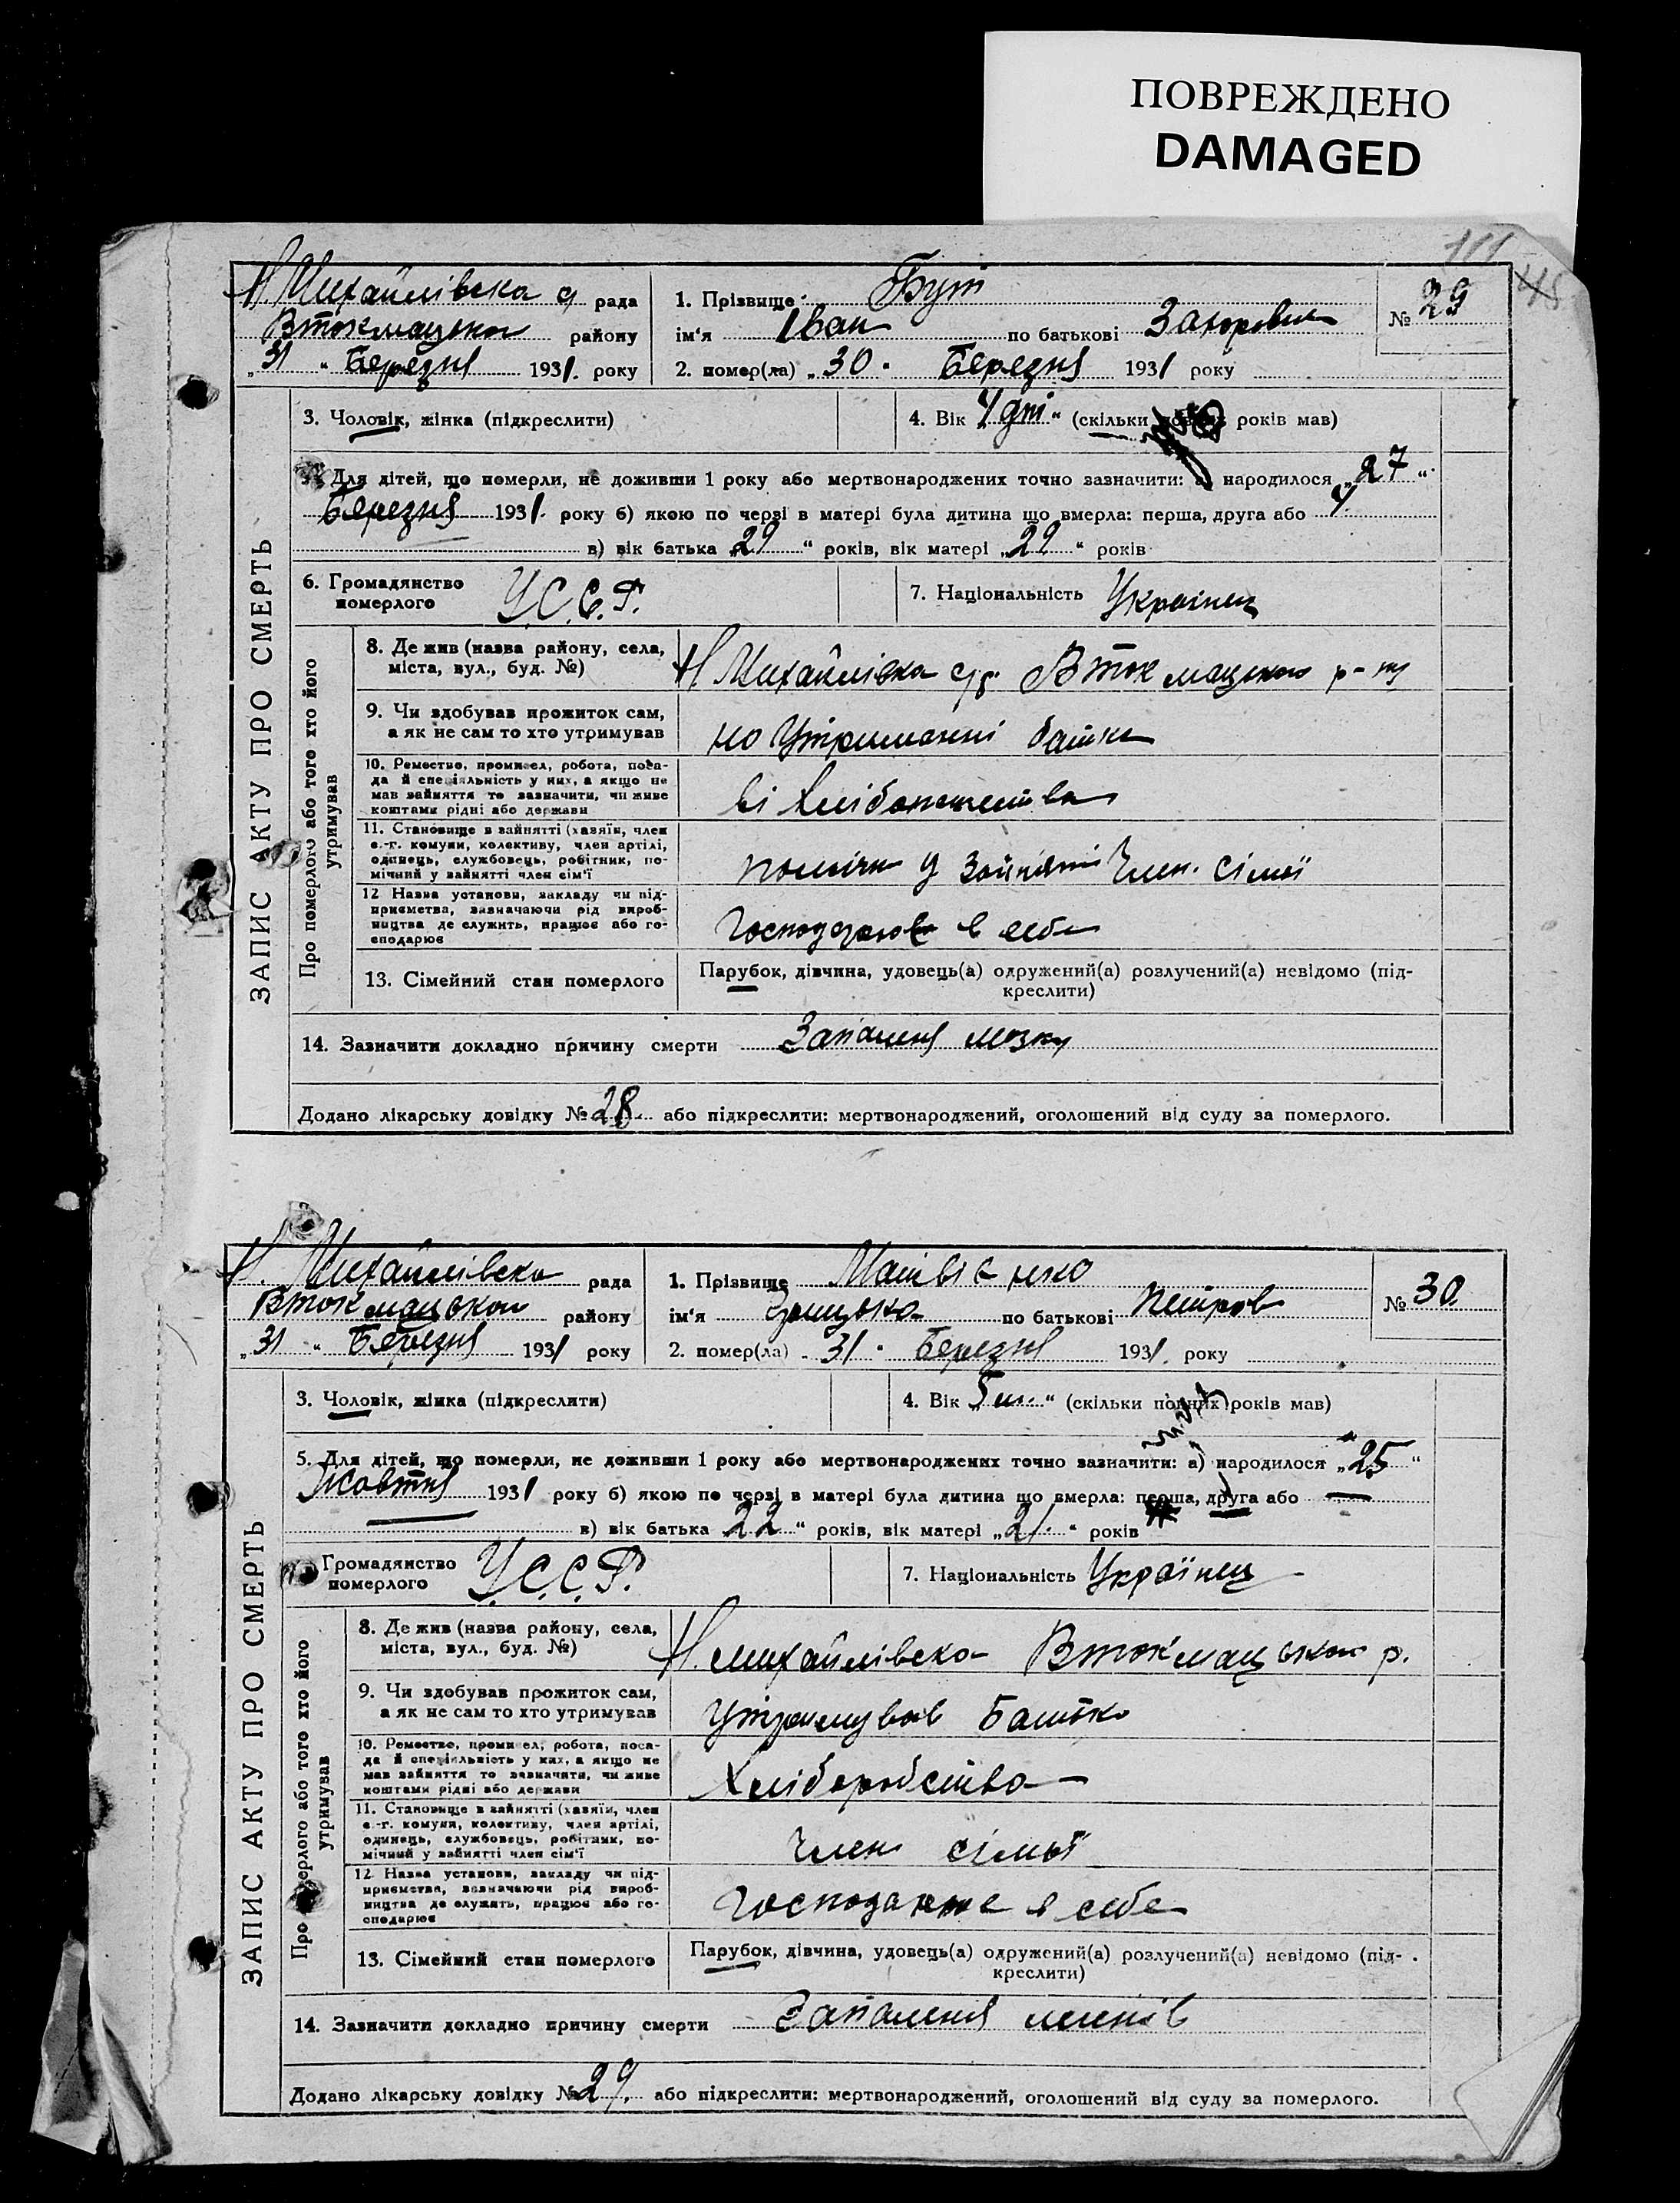 ПОВРЕЖДЕНО
DAMAGED
Н. Михайлівска с/ рада
Втокмацької району
„31“ Березня 1931. року
1. Прізвище Бут
ім'я Іван по батькові
2. помер(ла) „30“ Березня 1931 року
№ 29
ЗАПИС АКТУ ПРО СМЕРТЬ
3. Чоловік, жінка (підкреслити)
4. Вік „4 дні“ (скільки років мав)
Для дітей, що померли, не доживши 1 року або мертвонароджених точно зазначити: народилося „27“
Березня 1931. року б) якою по черзі в матері була дитина що вмерла: перша, друга або 4.
в) вік батька „29“ років, вік матері „29“ років
6. Громадянство
померлого У.С.С.Р.
7. Національність Українец
Про померлого або того хто його
утримував
8. Де жив (назва району, села,
міста, вул., буд. №)
Н Михайлівка с/р. Втокмацького р-ну
9. Чи здобував прожиток сам,
а як не сам то хто утримував
на Утриманні батька
10. Ремество, промисел, робота, поса-
да й спеціяльність у них, а якщо не
мав зайняття то зазначити, чи живе
коштами рідні або держави
11. Становище в зайнятті (хазяїн, член
с.-г. комуни, колективу, член артілі,
одинець, службовець, робітник, по-
мічний у зайнятті член сім'ї
у зайнятті Член. сімьї
12 Назва установи, закладу чи під-
приємства, зазначаючи рід вироб-
ництва де служить, працює або го-
сподарює
в себе
13. Сімейний стан померлого
Парубок, дівчина, удовець(а) одружений(а) розлучений(а) невідомо (під-
креслити)
14. Зазначити докладно причину смерти Запаленя мозку
Додано лікарську довідку № 28 або підкреслити: мертвонароджений, оголошений від суду за померлого.
Н. Михайлівска рада
Втокмацької району
„31“ Березня 1931 року
1. Прізвище Матвієнко
ім'я по батькові Петров
2. помер(ла) „31“ Березня 1931. року
№ 30.
ЗАПИС АКТУ ПРО СМЕРТЬ
3. Чоловік, жінка (підкреслити)
4. Вік „5 м.“ (скільки повних років мав)
5. Для дітей, що померли, не доживши 1 року або мертвонароджених точно зазначити: а) народилося „25“
Жовтня 1931 року б) якою по черзі в матері була дитина що вмерла: перша, друга або
в) вік батька 22“ років, вік матері „21.“ років
Громадянство
померлого У.С.С.Р.
7. Національність Українец
утримував
8. Де жив (назва району, села,
міста, вул., буд. №)
Н. михайлівска Втокмацької р.
9. Чи здобував прожиток сам,
а як не сам то хто утримував
Утримував Батько
10. Ремество, промисел, робота, поса-
да й спеціяльність у них, а якщо не
мав зайняття то зазначити, чи живе
коштами рідні або держави
Хліборобство
11. Становище в зайнятті (хазяїн, член
с.-г. комуни, колективу, член артілі,
одинець, службовець, робітник, по-
мічний у зайнятті член сім'ї
Член сімьї
12. Назва установи, закладу чи під-
приємства, зазначаючи рід вироб-
ництва де служить, працює або го-
сподарює
в себе
13. Сімейний стан померлого
Парубок, дівчина, удовець(а) одружений(а) розлучений(а) невідомо (під-
креслити)
14. Зазначити докладно причину смерти Запаленя
Додано лікарську довідку № 29. або підкреслити: мертвонароджений, оголошений від суду за померлого.